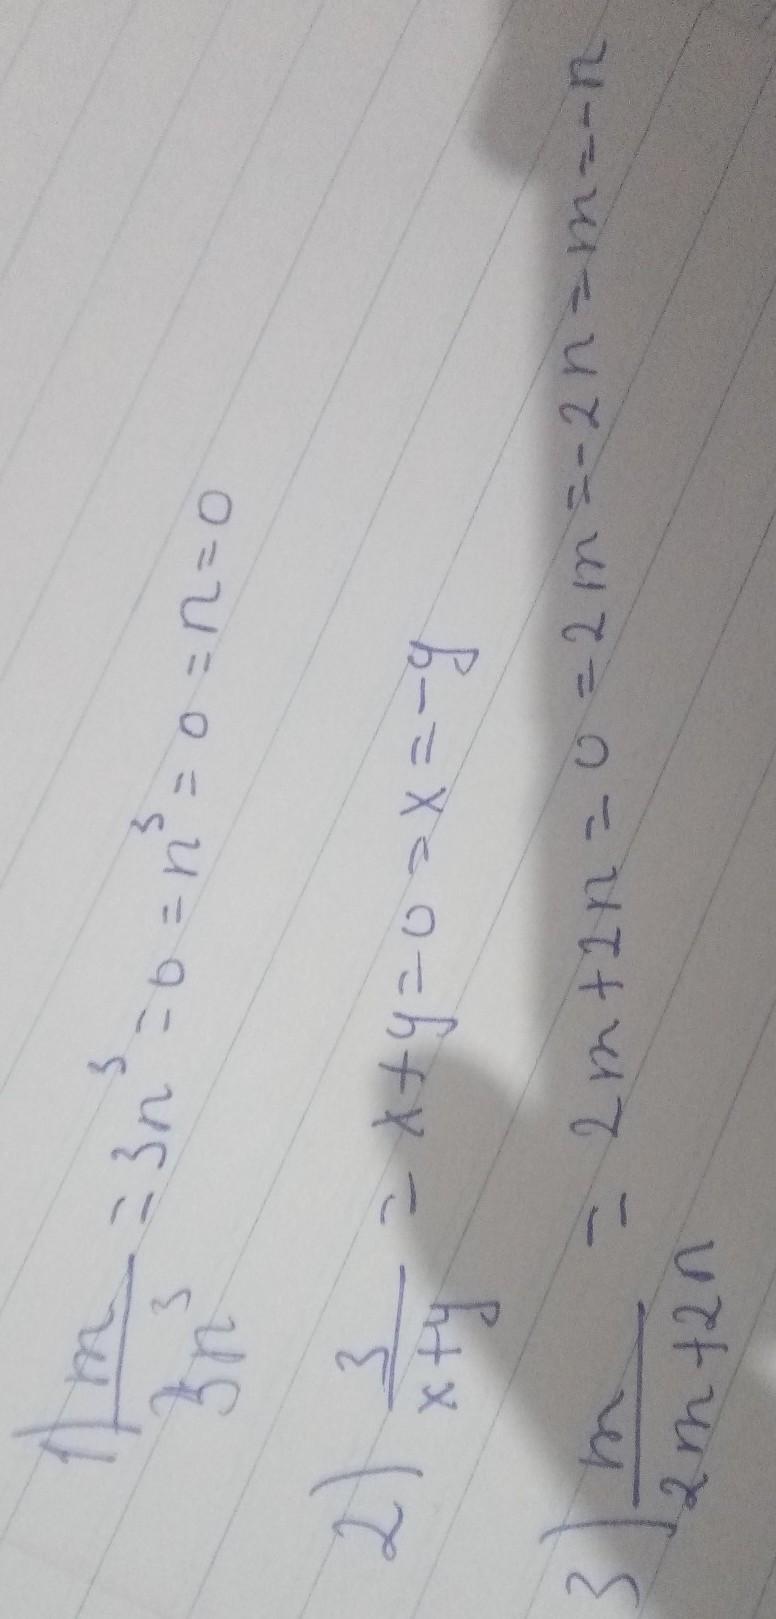 1) m/3n³ = 3n³ = 0 = n³ = 0 = n = 0
2) 3/x+y = x+y = 0 = x = -y
3) m/2m+2n = 2m+2n = 0 = 2m = -2n = m = -n